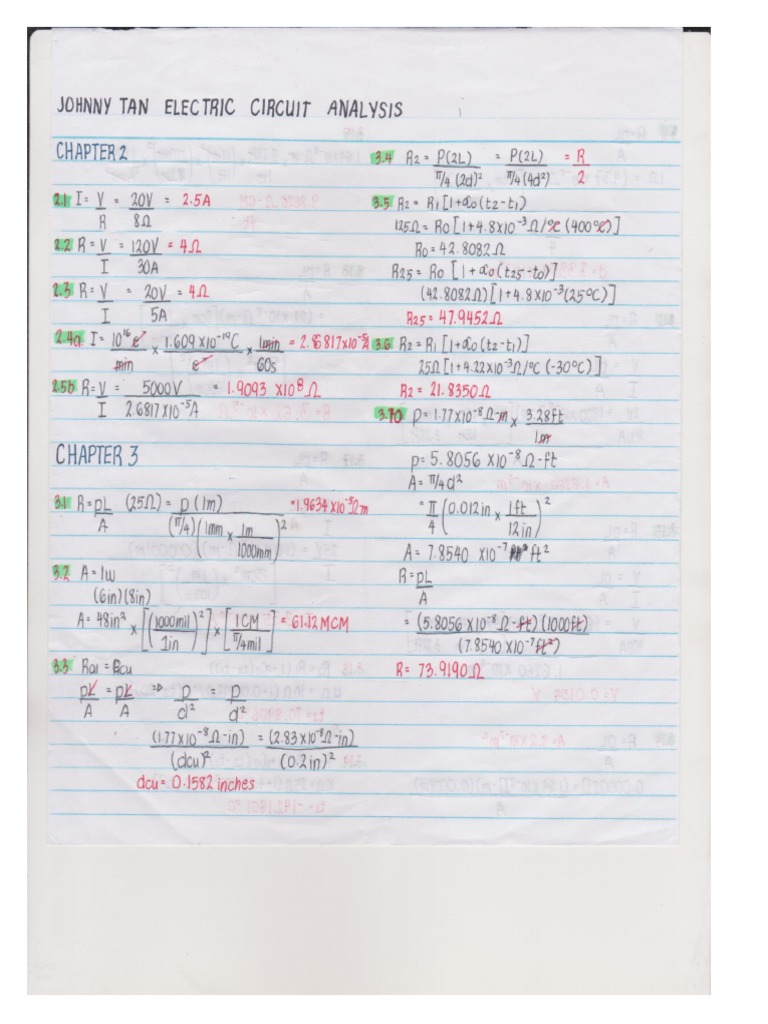 JOHNNY TAN ELECTRIC CIRCUIT ANALYSIS
CHAPTER 2
2.1 I = V/R = 20V/8Ω = 2.5A
2.2 R = V/I = 120V/30A = 4Ω
2.3 R = V/I = 20V/5A = 4Ω
2.4a I = 10¹⁶ e⁻/min × 1.609 X10⁻¹⁹C/e⁻ × 1min/60s = 2.6817x10⁻⁵A
2.5b R = V/I = 5000V/2.6817X10⁻⁵A = 1.9093 X10⁸Ω
CHAPTER 3
3.1 R = ρL/A (25Ω) = ρ (1m)/(π/4)(1mm x 1m/1000mm)² = 1.9634x10⁻⁵Ωm
3.2 A = lw
(6in)(8in)
A = 48in² x [(1000mil/1in)²] x [1CM/π/4mil] = 61.12 MCM
3.3 Ral = Rcu
ρL/A = ρL/A => ρ/d² = ρ/d²
(1.77X10⁻⁸Ω-in)/(dcu)² = (2.83x10⁻⁸Ω-in)/(0.2in)²
dcu = 0.1582 inches
3.4 R2 = P(2L)/π/4 (2d)² = P(2L)/π/4(4d²) = R/2
3.5 R2 = R1[1+α0(t2-t1)
125Ω = R0[1+4.8x10⁻³Ω/°C (400°C)]
R0 = 42.8082Ω
R25 = R0 [1+α0(t25-t0)]
(42.8082Ω)[1+4.8X10⁻³(25°C)]
R25 = 47.9452Ω
3.6 R2 = R1[1+α0(t2-t1)]
25Ω[1+4.22x10⁻³Ω/°C (-30°C)]
R2 = 21.8350Ω
3.70 ρ = 1.77X10⁻⁸Ω-m x 3.28ft/1m
ρ = 5.8056 X10⁻⁸Ω-ft
A = π/4d²
= π/4 (0.012in x 1ft/12in)²
A = 7.8540 X10⁻⁷ ft²
R = ρL/A
= (5.8056 X10⁻⁸Ω-ft)(1000ft)/(7.8540 X10⁻⁷ft²)
R = 73.9190Ω